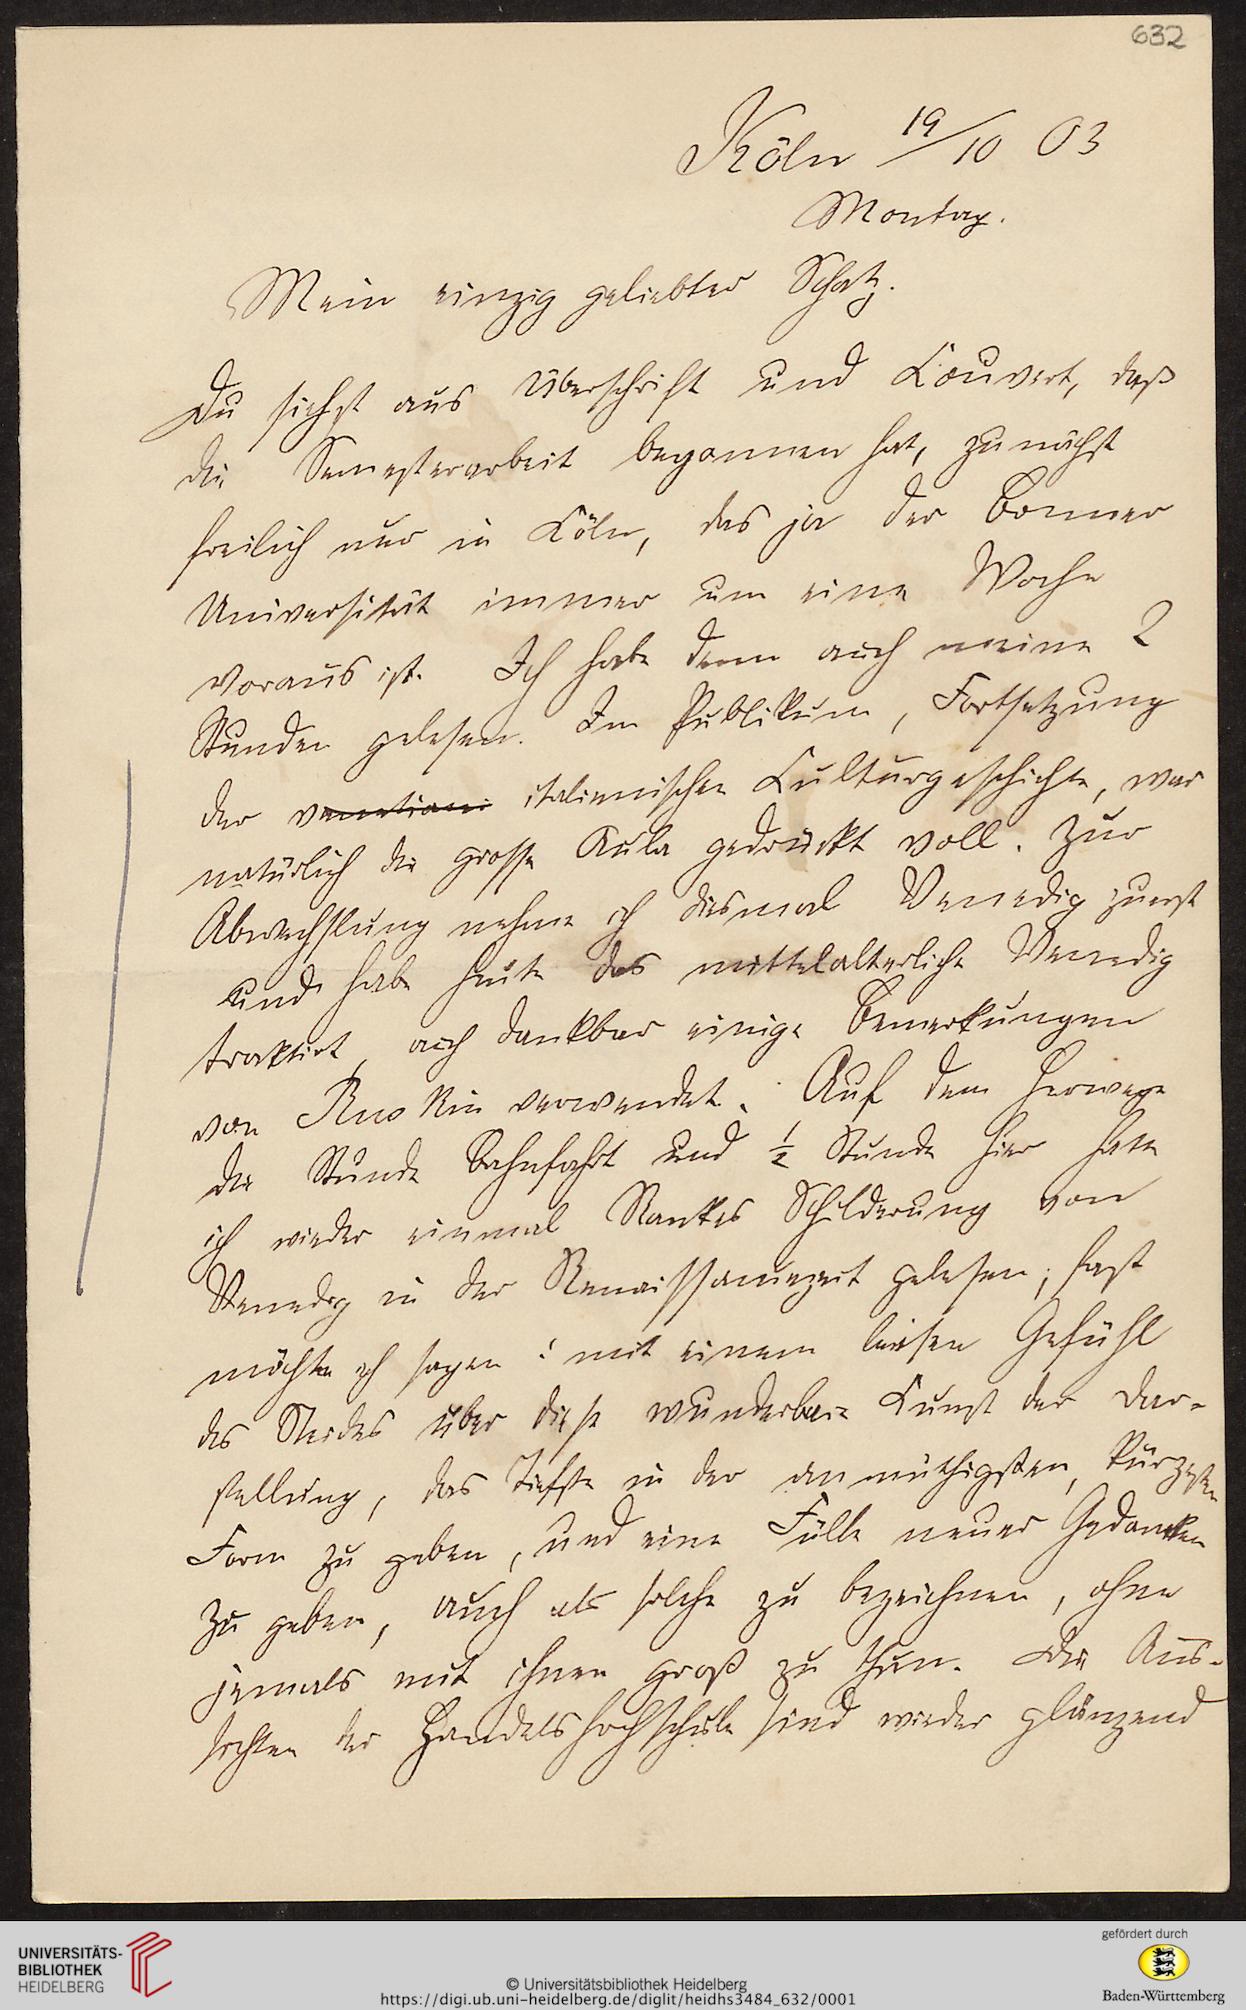 632
Köln 19/10 03
Montag.
Mein einzig geliebter Schatz.
Du siehst aus Überschrift und Couvert, daß
die Semesterarbeit begonnen hat, zunächst
freilich nur in Köln, das ja der Bonner
Universität immer um eine Woche
voraus ist. Ich habe denn auch meine 2
Stunden gelesen. Im Publikum, Fortsetzung
der venetiani italienischen Culturgeschichte, war
natürlich die grosse Aula gedrückt voll. Zur
Abwechslung nehme ich diesmal Venedig zuerst
und habe heute das mittelalterliche Venedig
traktirt, auch dankbar einige Bemerkungen
von Ruskin verwendet. Auf dem Herwege
die Stunde Bahnfahrt und ½ Stunde hier hatte
ich wieder einmal Rankes Schilderung von
Venedig in der Renaissancezeit gelesen; fast
möchte ich sagen: mit einem leisen Gefühl
des Neides über diese wunderbare Kunst der Dar-
stellung, das Tiefste in der anmuthigsten, kürzesten
Form zu geben, und eine Fülle neuer Gedanken
zu geben, auch als solche zu bezeichnen, ohne
jemals mit ihnen groß zu thun. Die Aus-
sichten der Handelshochschule sind wieder glänzend
UNIVERSITÄTS-
BIBLIOTHEK
HEIDELBERG
© Universitätsbibliothek Heidelberg
https://digi.ub.uni-heidelberg.de/diglit/heidhs3484_632/0001
gefördert durch
Baden-Württemberg